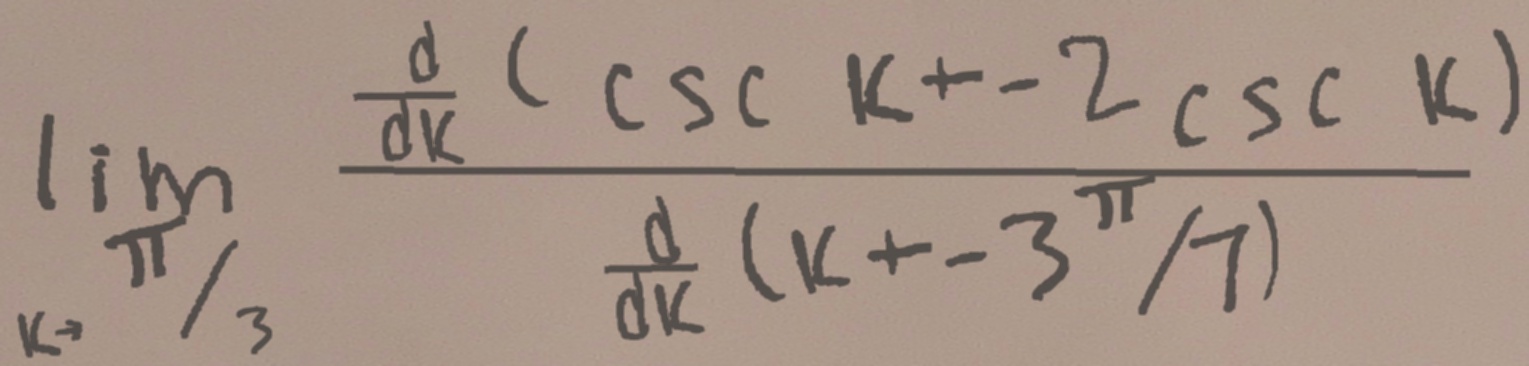 \lim_{k \to \pi/3} \frac{\frac{d}{dk}(\csc k + -2 \csc k)}{\frac{d}{dk}(k + -3^{\pi}/7)}